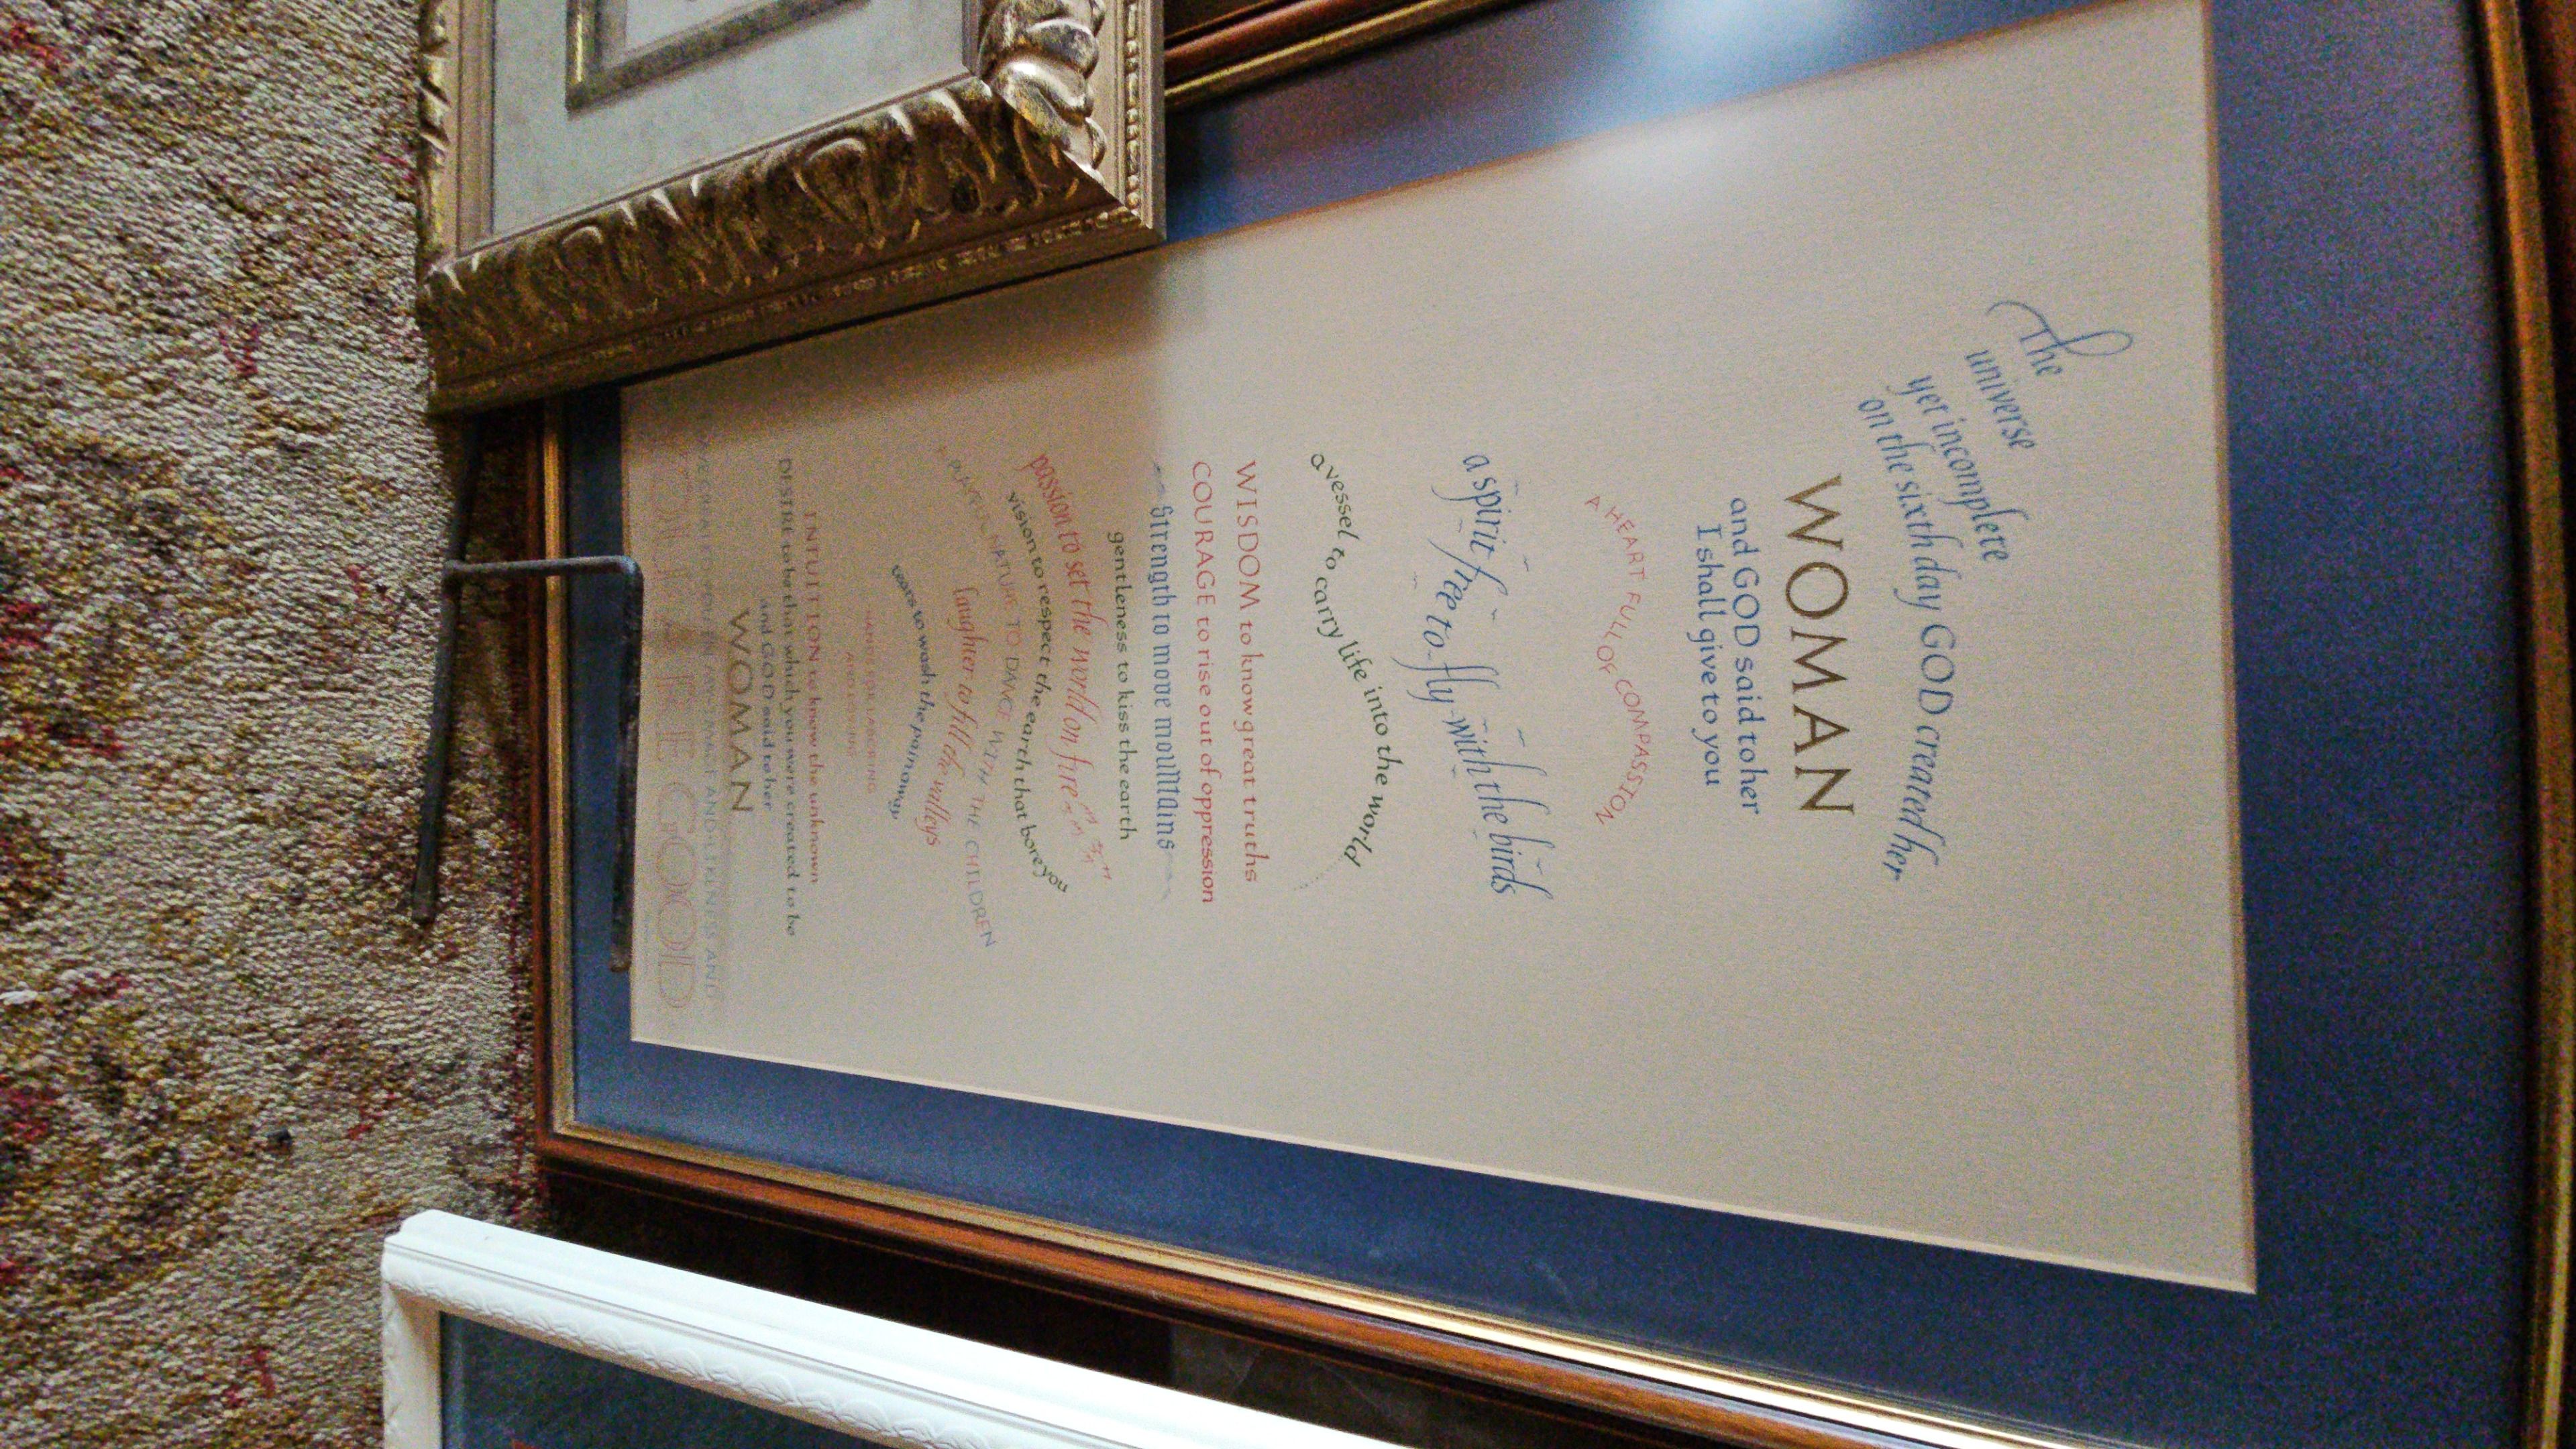 The
universe
yet incomplete
on the sixth day GOD created her
WOMAN
and GOD said to her
I shall give to you
A HEART FULL OF COMPASSION
a spirit free to fly with the birds
a vessel to carry life into the world
WISDOM to know great truths
COURAGE to rise out of oppression
Strength to move mountains
gentleness to kiss the earth
passion to set the world on fire
vision to respect the earth that bore you
A PLAYFUL NATURE TO DANCE WITH THE CHILDREN
laughter to fill the valleys
tears to wash the pain away
HANDS FOR LABORING
AND LOVING
INTUITION to know the unknown
DESIRE to be that which you were created to be
and GOD said to her
WOMAN
I'VE CREATED YOU IN MY IMAGE AND LIKENESS AND
YOU ARE GOOD